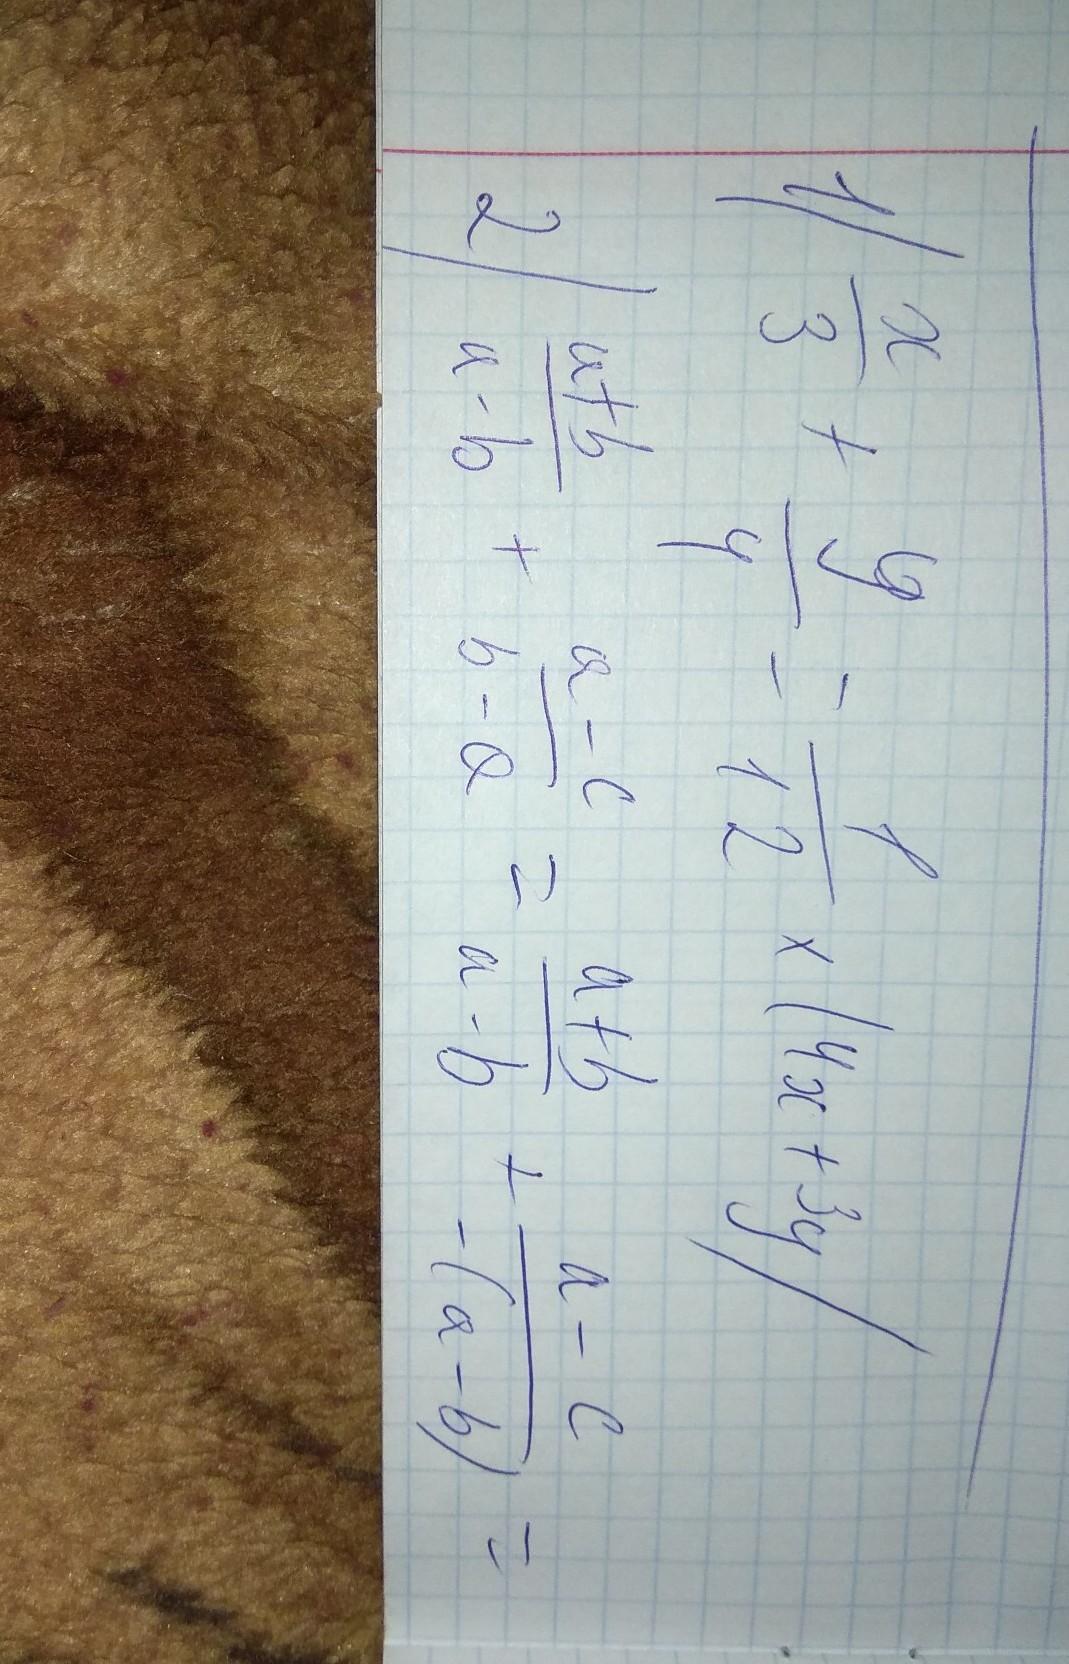 1) x/3 + y/4 = 1/12 x (4x + 3y)
2) a+b/a-b + a-c/b-a = a+b/a-b + a-c/-(a-b) =